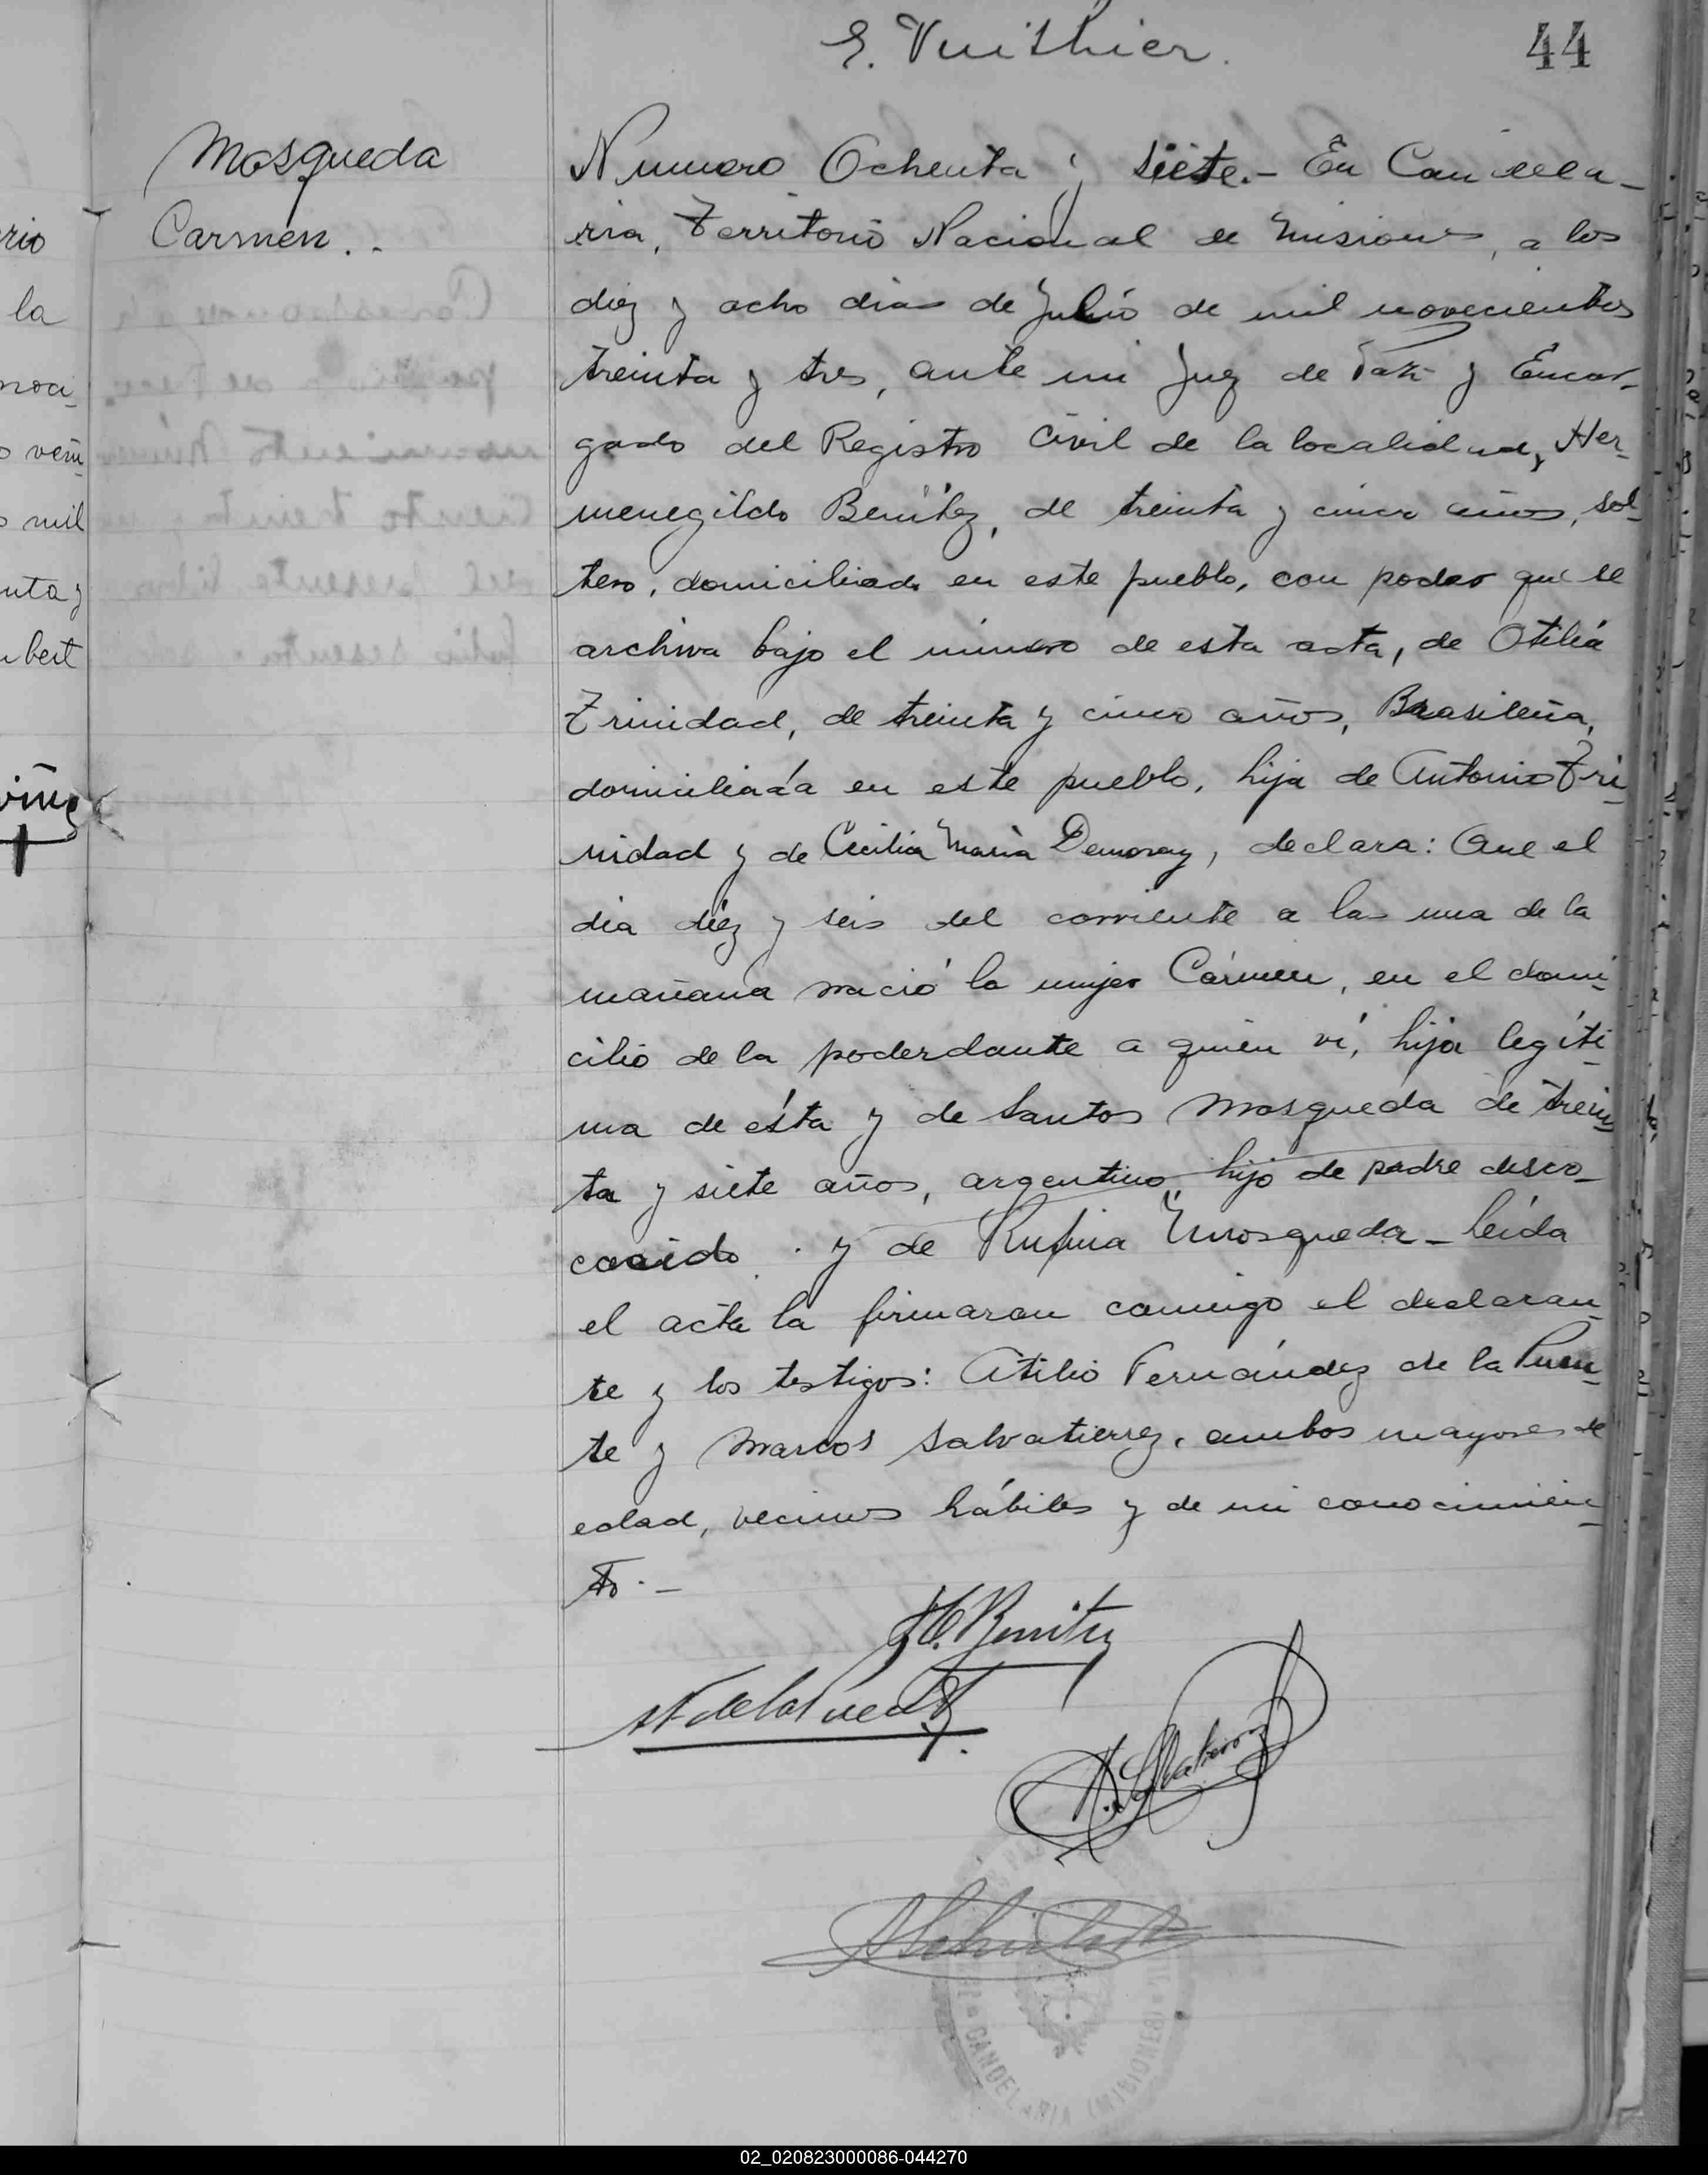 E. Vuithier.
44
Mosqueda
Carmen..
Numero Ochenta y siete.- En Candela-
ria, Territorio Nacional de Misiones, a los
diez y ocho dias de Julio de mil novecientos
treinta y tres, ante mi Juez de Paz y Encar-
gado del Registro Civil de la localidad, Her-
menegildo Benítez, de treinta y cinco años, sol-
tero, domiciliado en este pueblo, con poder que se
archiva bajo el número de esta acta, de Otilia
Trinidad, de treinta y cinco años, Brasileña,
domiciliada en este pueblo, hija de Antonio Tri-
nidad y de Cecilia Maria, declara: Que el
dia diez y seis del corriente a las una de la
mañana nació la mujer Cármen, en el domi-
cilio de la poderdante a quien vi, hija legíti-
ma de ésta y de Santos Mosqueda de trein-
ta y siete años, argentino, hijo de padre desco-
cocido. y de Rufina Mosqueda - leída
el acta la firmaron conmigo el declaran-
te y los testigos: Atilio Fernández de la Puen-
te y Marcos Salvatierrez, ambos mayores de
edad, vecinos hábiles y de mi conocimien-
to.-
H. Benitez
AF de la Puente
M. Salvatierrez
CANDELARIA (MISIONES)
rio
la
noci-
vein
mil
nta y
bert
02_020823000086-044270